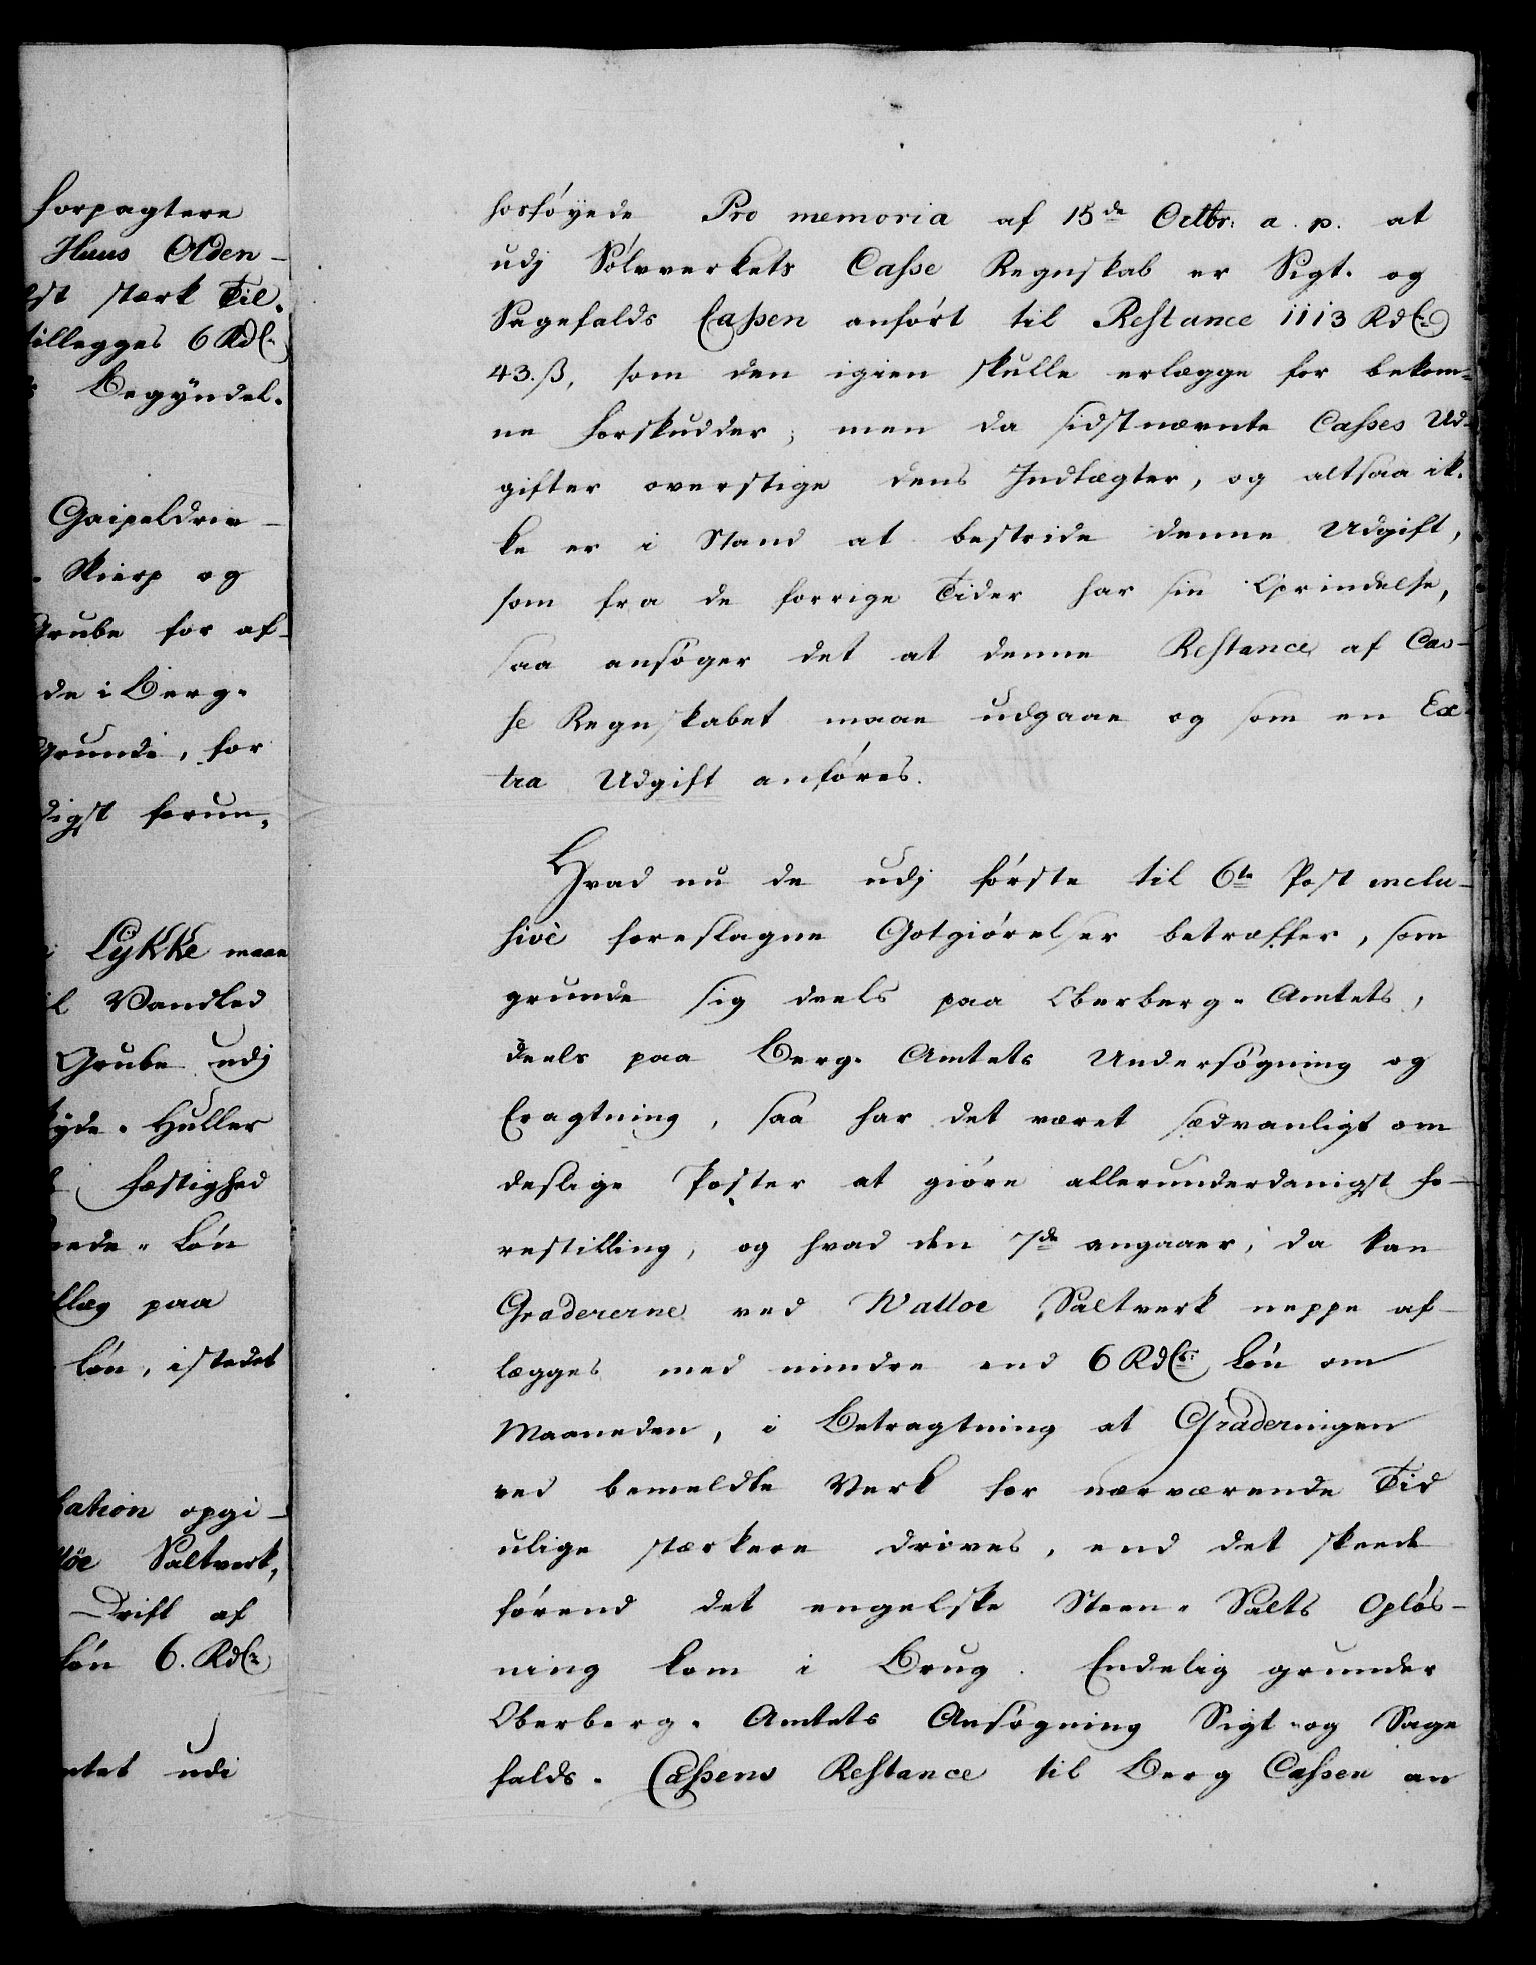 forpagtere
Huus Olden-
stærk Til-
tillegges 6 Rdlr
Begyndel-
Gaipeldrie-
Skierp og
Grube for af-
de i Berg-
Grunde, for
digst forun-
Lykke maae
Vandled
Grube udj
Huller
Fæstighed
Løn
paa
Løn, istedet
opgi-
Saltverk,
Drift af
Løn 6. Rdlr
udi
hosføyede Pro memoria af 15de Octbr: a. p. at
udj Sølvverkets Casse Regnskab er Sigt- og
Sagefalds Cassen anført til Restance 1113 Rdlr
43. ß, som den igien skulle erlægge for bekom-
ne Forskudder; men da sidstnævnte Casses Ud-
gifter overstige dens Indtægter, og altsaa ik-
ke er i Stand at bestride denne Udgift,
som fra de forrige Tider har sin Oprindelse,
saa ansøger det at denne Restance af Cas-
se Regnskabet maae udgaae og som en Ex-
tra Udgift anføres.
Hvad nu de udj første til 6te Post inclu-
sivè foreslagne Gotgiørelser betræffer, som
grunde sig deels paa Oberberg-Amtets,
deels paa Berg-Amtets Undersøgning og
Eragtning, saa har det været sædvanligt om
deslige Poster at giøre allerunderdanigst Fo-
restilling, og hvad den 7de angaaer, da kan
Gradererne ved Walloe Saltverk neppe af-
lægges med mindre end 6 Rdlr: Løn om
Maaneden, i Betragtning at Graderingen
ved bemeldte Verk for nærværende Tid
ulige stærkere drives, end det skeede
førend det engelske Steen-Salts Opløs-
ning kom i Brug. Endelig grunder
Oberberg-Amtets Ansøgning Sigt- og Sage
falds-Cassens Restance til Berg Cassen an